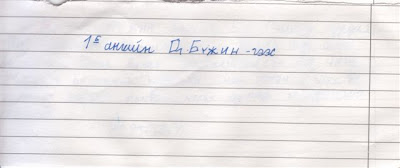 1б ангийн Д. Бүжин - гээ